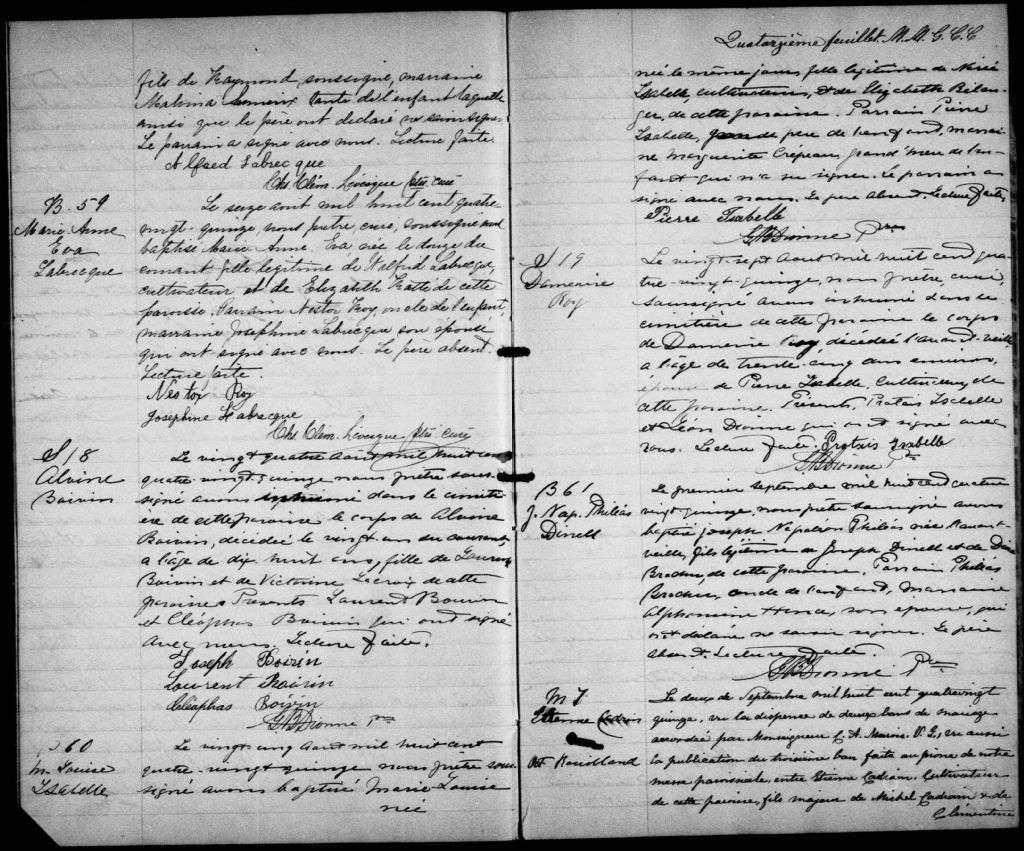 fils de Raymond, soussigné, marraine
Malvina Lemieux tante de l'enfant laquelle
ainsi que le père ont déclaré ne savoir signer
Le parrain a signé avec nous. Lecture faite.
Alfred Labrecque
Chs. Clém. Lévesque Ptre Curé
B. 59
Marie Anne
Eva
Labrecque
Le seize aout mil huit cent quatre
vingt-quinze, nous, prêtre curé, soussigné avons
baptisé Marie Anne Eva née le douze du
courant fille legitime de Labrecque,
cultivateur et de Elizabeth de cette
paroisse. Parrain Nestor Roy, oncle de l'enfant,
marraine Josephine Labrecque son épouse
qui ont signé avec nous. Le père absent.
Lecture faite
Nestor Roy
Josephine Labrecque
Chs. Clém. Lévesque Ptre Curé
S 18
Alvine
Boivin
Le vingt quatre Aout mil huit cent
quatre-vingt-quinze nous prêtre sous-
signé avons inhumé dans le cimeti-
ère de cette paroisse le corps de Alvine
Boivin, décédée le vingt un du courant
a l'âge de dix huit ans, fille de Laurent
Boivin et de Victorine Lacroix de cette
paroisse. Presents Laurent Boivin
et Cléophas Boivin qui ont signé
avec nous. Lecture faite.
Joseph Boivin
Laurent Boivin
Cléophas Boivin
G. B. Dionne Ptre
60
M. Louise
Isabelle
Le vingt cinq Aout mil huit cent
quatre-vingt-quinze nous prêtre sous-
signé avons baptisé Marie Louise
née
Quatorzième feuillet. M. M. G. C. C
née le même jour, fille legitime de
Isabelle, cultivateur, et de Elizabeth Bélan-
ger, de cette paroisse. Parrain Pierre
Isabelle, père de l'enfant, marrai-
ne Marguerite Crépeau, grand'mere de l'en-
fant qui n'a su signer. Le parrain a
signé avec nous. Le père absent. Lecture faite,
Pierre Isabelle
G. B. Dionne Ptre
S 19
Damerine
Roy
Le vingt-sept Aout mil huit cent qua-
tre-vingt-quinze, nous prêtre, curé,
soussigné avons inhumé dans le
cimitière de cette paroisse le corps
de Damerine Roy décédée l'avant-veille
a l'âge de trente-cinq ans environ,
épouse de Pierre Isabelle, Cultivateur, de
cette paroisse. Présents, Protais Isabelle
et Léon Dionne qui ont signé avec
nous. Lecture faite. Protais Isabelle
G. B. Dionne Ptre
B 61
J. Nap. Philéas
Dinell
Le premier septembre mil huit cent quatre
vingt quinze, nous prêtre soussigné avons
baptisé Joseph Napoléon Philéas née l'avant-
veille, fils légitime de Joseph Dinell et de
de cette paroisse. Parrain Philéas
oncle de l'enfant, Marraine
Alphonsine son épouse, qui
ont déclaré ne savoir signer. Le père
absent. Lecture faite.
G. B. Dionne Ptre
M 7
Etienne Cadrin
Rouilland
Le deux de Septembre mil huit cent quatrevingt
quinze, vu la dispense de deux bans de mariage
accordée par Monseigneur C. A. Marois V. G., vu aussi
la publication du troisième ban faite au prone de notre
messe paroissiale, entre Etienne Cadrain, Cultivateur
de cette paroisse, fils majeur de Michel Cadrain & de
Clémentine